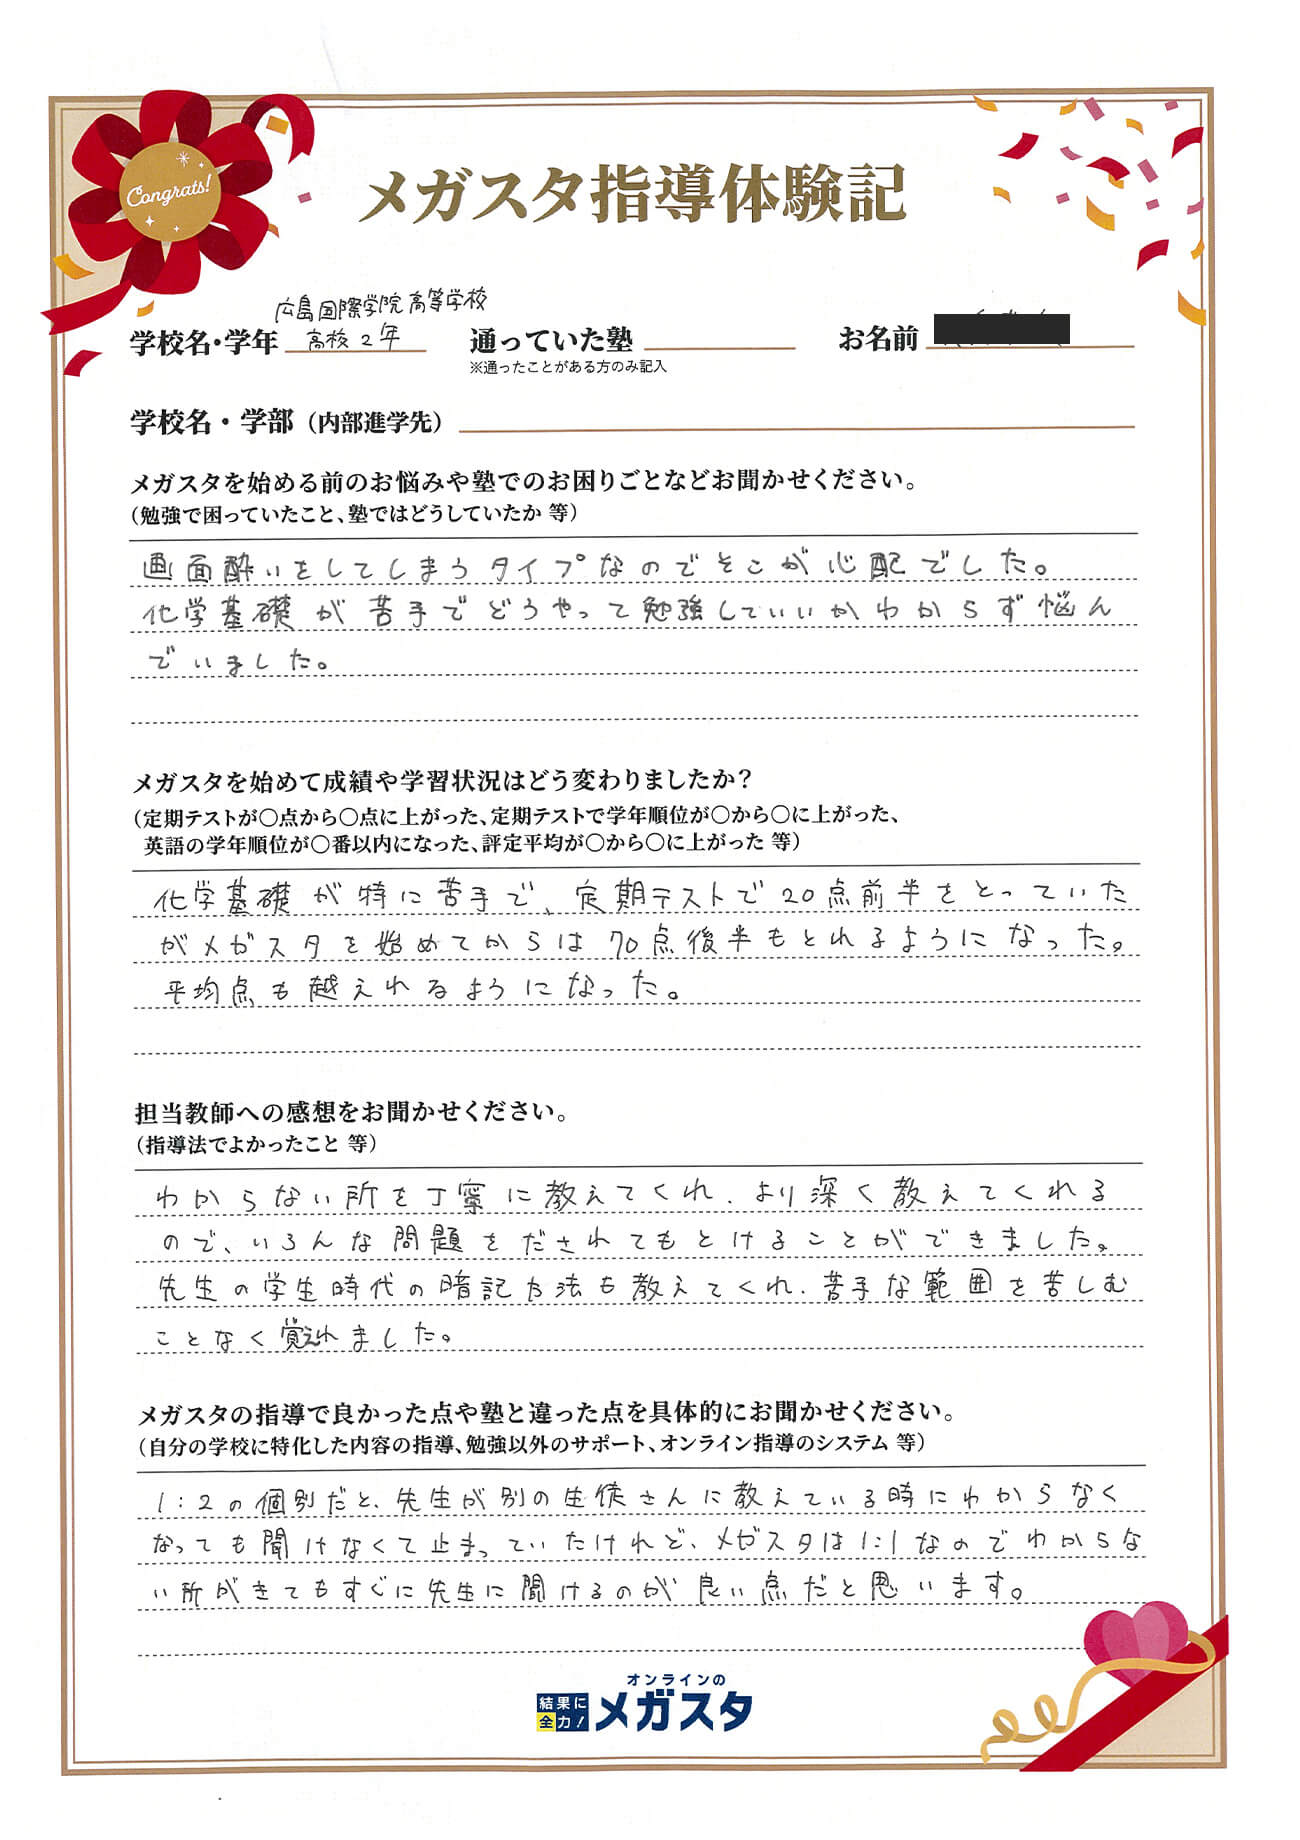 Congrats!
メガスタ指導体験記
広島国際学院高等学校
学校名・学年 高校2年 通っていた塾 お名前
※通ったことがある方のみ記入
学校名・学部（内部進学先）
メガスタを始める前のお悩みや塾でのお困りごとなどお聞かせください。
（勉強で困っていたこと、塾ではどうしていたか 等）
画面酔いをしてしまうタイプなのでそこが心配でした。
化学基礎が苦手でどうやって勉強していいかわからず悩ん
でいました。
メガスタを始めて成績や学習状況はどう変わりましたか？
（定期テストが〇点から〇点に上がった、定期テストで学年順位が〇から〇に上がった、
英語の学年順位が〇番以内になった、評定平均が〇から〇に上がった 等）
化学基礎が特に苦手で、定期テストで20点前半をとっていた
がメガスタを始めてからは70点後半もとれるようになった。
平均点も越えれるようになった。
担当教師への感想をお聞かせください。
（指導法でよかったこと 等）
わからない所を丁寧に教えてくれ、より深く教えてくれる
ので、いろんな問題をだされてもとけることができました。
先生の学生時代の暗記方法も教えてくれ、苦手な範囲を苦しむ
ことなく覚えれました。
メガスタの指導で良かった点や塾と違った点を具体的にお聞かせください。
（自分の学校に特化した内容の指導、勉強以外のサポート、オンライン指導のシステム 等）
1:2の個別だと、先生が別の生徒さんに教えている時にわからなく
なっても聞けなくて止まっていたけれど、メガスタは1:1なのでわからな
い所がきてもすぐに先生に聞けるのが良い点だと思います。
オンラインの
結果に全力！メガスタ